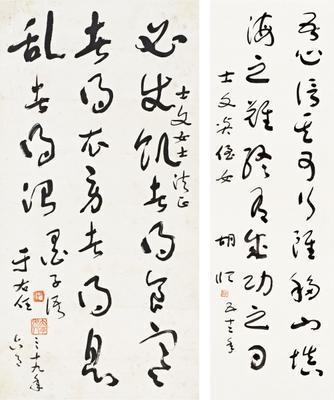 吾心信其可行雖移山填
海之難終有成功之日
士文侄女
胡
五十三年
必使飢者得食寒
士文女士法正
者得衣勞者得息
乱者得治
墨子語
于右任
三十九年